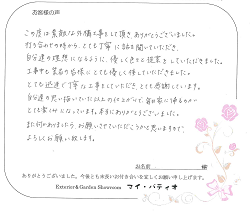 お客様の声
この度は素敵な外構工事をして頂き、ありがとうございました。
打ち合わせの時から、とても丁寧に話を聞いていただき、
自分達の理想になるように、優しく色々と提案をしていただきました。
工事中も業者の皆様にとても優しく接していただきました。
とても迅速で丁寧な工事をしていただき、とても感謝しています。
自分達の思い描いていた以上の仕上がりで、毎日家に帰るのが
とても楽しみになっています。本当にありがとうございました。
また何かありましたら、お願いさせていただこうかと思いますので、
よろしくお願い致します。
お名前 様
ありがとうございました。今後とも末長いお付き合いを宜しくお願い申し上げます。
Exterior&Garden Showroom マイ・パティオ